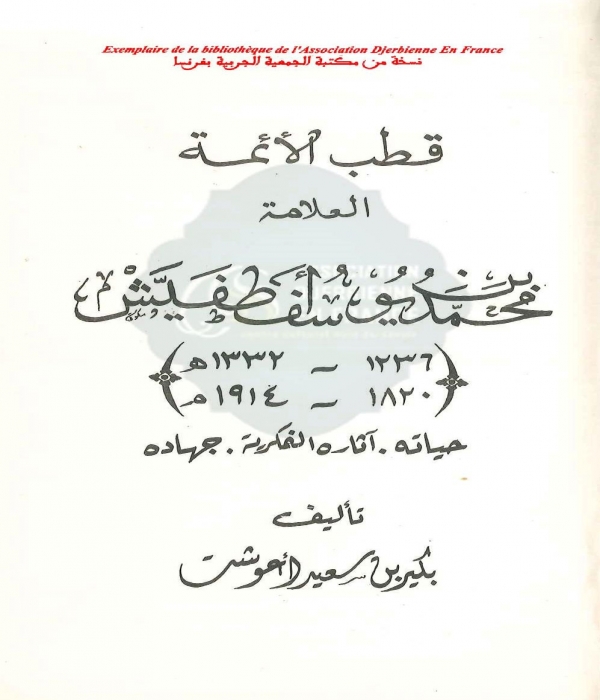 Exemplaire de la bibliothèque de l'Association Djerbienne En France
نسخة من مكتبة الجمعية الجربية بفرنسا
قطب الأئمة
العلامة
محمد بن يوسف أطفيش
١٢٣٦ - ١٣٣٢ هـ
١٨٢٠ - ١٩١٤ م
حياته . آثاره الفكرية . جهاده
تأليف
بكير بن سعيد أعوشت